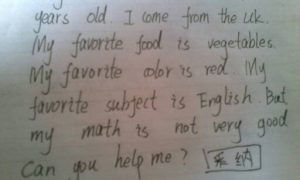 years old. I come from the UK.
My favorite food is vegetables.
My favorite color is red. My
favorite subject is English. But
my math is not very good
Can you help me? 采纳